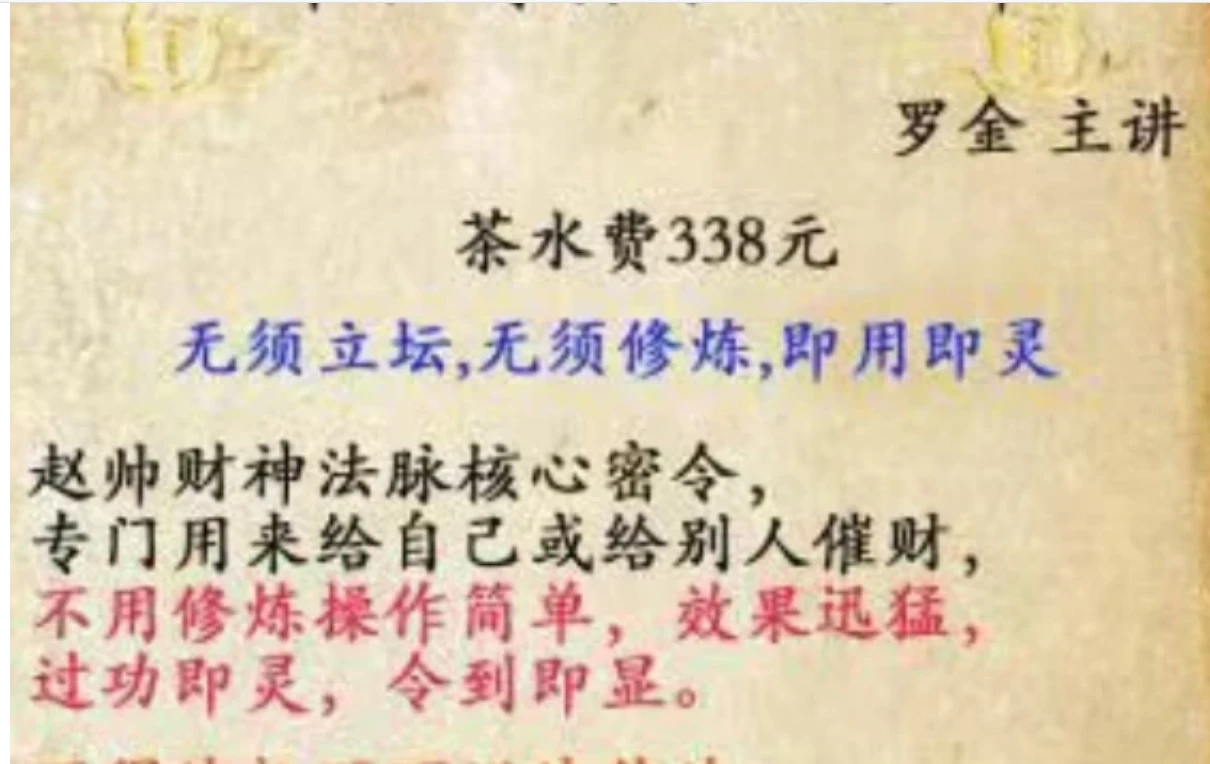 罗金 主讲
茶水费338元
无须立坛,无须修炼,即用即灵
赵帅财神法脉核心密令，
专门用来给自己或给别人催财，
不用修炼操作简单，效果迅猛，
过功即灵，令到即显。